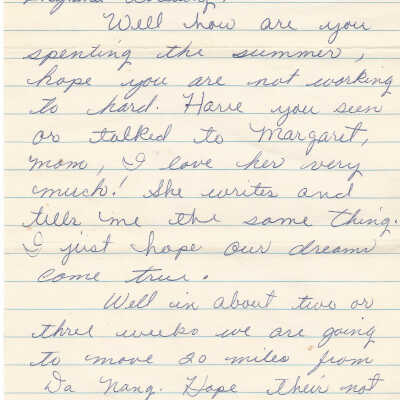 Well how are you
spenting the summer,
hope you are not working
to hard. Have you seen
or talked to Margaret,
mom, I love her very
much! She writes and
tells me the same thing.
I just hope our dreams
come true.
Well in about two or
three weeks we are going
to move 20 miles from
Da Nang. Hope their not